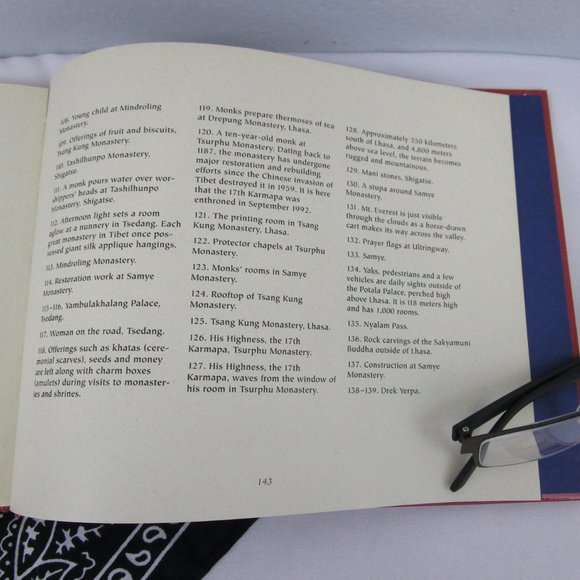 108. Young child at Mindroling
Monastery.
109. Offerings of fruit and biscuits,
Tsang Kung Monastery.
110. Tashilhunpo Monastery,
Shigatse.
111. A monk pours water over wor-
shippers' heads at Tashilhunpo
Monastery, Shigatse.
112. Afternoon light sets a room
aglow at a nunnery in Tsedang. Each
great monastery in Tibet once pos-
sessed giant silk applique hangings.
113. Mindroling Monastery.
114. Restoration work at Samye
Monastery.
115–116. Yambulakhalang Palace,
Tsedang.
117. Woman on the road, Tsedang.
118. Offerings such as khatas (cere-
monial scarves), seeds and money
are left along with charm boxes
(amulets) during visits to monaster-
ies and shrines.
119. Monks prepare thermoses of tea
at Drepung Monastery, Lhasa.
120. A ten-year-old monk at
Tsurphu Monastery. Dating back to
1187, the monastery has undergone
major restoration and rebuilding
efforts since the Chinese invasion of
Tibet destroyed it in 1959. It is here
that the 17th Karmapa was
enthroned in September 1992.
121. The printing room in Tsang
Kung Monastery, Lhasa.
122. Protector chapels at Tsurphu
Monastery.
123. Monks' rooms in Samye
Monastery.
124. Rooftop of Tsang Kung
Monastery.
125. Tsang Kung Monastery, Lhasa.
126. His Highness, the 17th
Karmapa, Tsurphu Monastery.
127. His Highness, the 17th
Karmapa, waves from the window of
his room in Tsurphu Monastery.
128. Approximately 350 kilometers
south of Lhasa, and 4,800 meters
above sea level, the terrain becomes
rugged and mountainous.
129. Mani stones, Shigatse.
130. A stupa around Samye
Monastery.
131. Mt. Everest is just visible
through the clouds as a horse-drawn
cart makes its way across the valley.
132. Prayer flags at Ultringway.
133. Samye.
134. Yaks, pedestrians and a few
vehicles are daily sights outside of
the Potala Palace, perched high
above Lhasa. It is 118 meters high
and has 1,000 rooms.
135. Nyalam Pass.
136. Rock carvings of the Sakyamuni
Buddha outside of Lhasa.
137. Construction at Samye
Monastery.
138–139. Drek Yerpa.
143